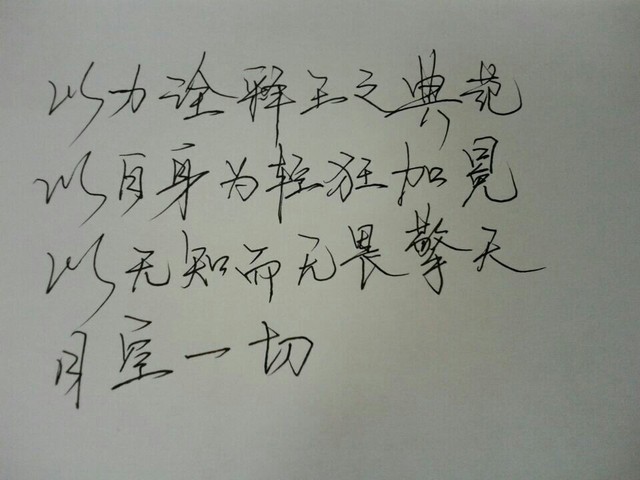 以力诠释王之典范
以自身为轻狂加冕
以无知而无畏擎天
目空一切